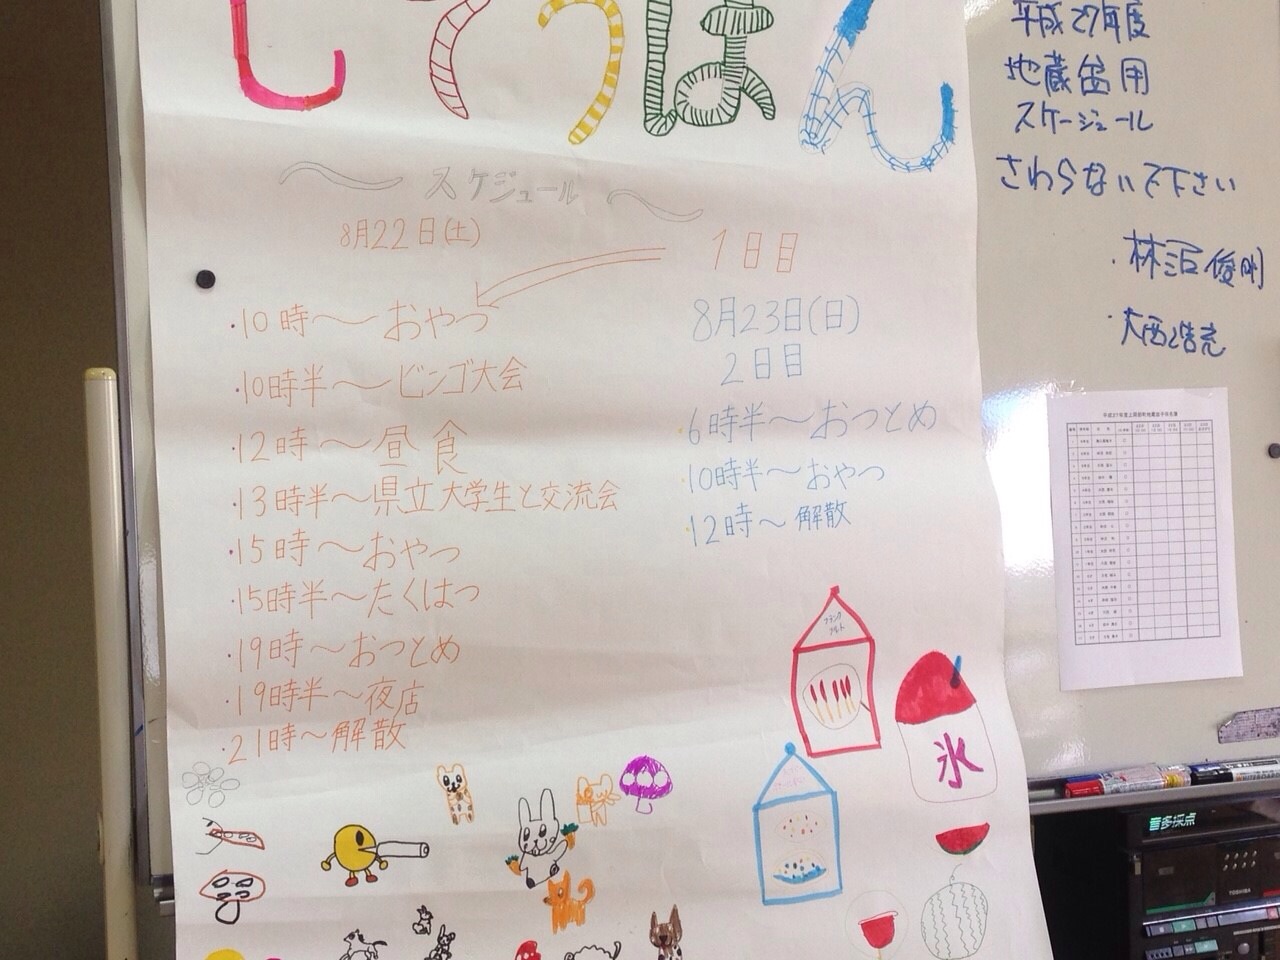 じぞうぼん
スケジュール
8月22日(土)
1日目
・10時〜おやつ
・10時半〜ビンゴ大会
・12時〜昼食
・13時半〜県立大学生と交流会
・15時〜おやつ
・15時半〜たくはつ
・19時〜おつとめ
・19時半〜夜店
・21時〜解散
8月23日(日)
2日目
・6時半〜おつとめ
・10時〜おやつ
・12時〜解散
フランク
フルト
氷
平成27年度
地蔵盆用
スケージュール
さわらないで下さい
・林沼俊明
・大西浩充
音多採点
TOSHIBA